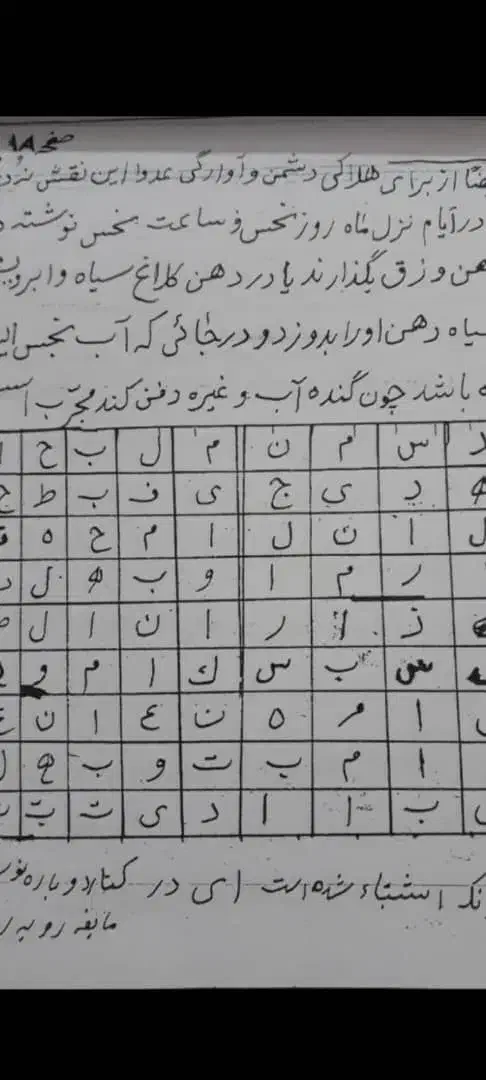 صفحه ۹۸
از برای هلاکی دشمن و آوارگی عدوا این نقش نزد
در آیام نزل ماه روز نحس و ساعت نحس نوشته
وزق بگذارند یا در دهن کلاغ سیاه و ابرویش
سیاه دهن او را بدوزد و در جائی که آب نجس
باشد چون گنده آب و غیره دفن کند مجرب
س م ن م ل ب ح
ه د ی ج ی ف ب ط ج
ل ا ن ل ا م ح ه
ر م ا و ب ه ل
ز ا ر ا ن ا ل
س ب س ک ا م و
ا م ه ن ع ا ن
ا م ب ت و ب ه
ب ا ا د ی ت ب
اشتباء شده است ای در کتاب دوباره
مابقه روبه